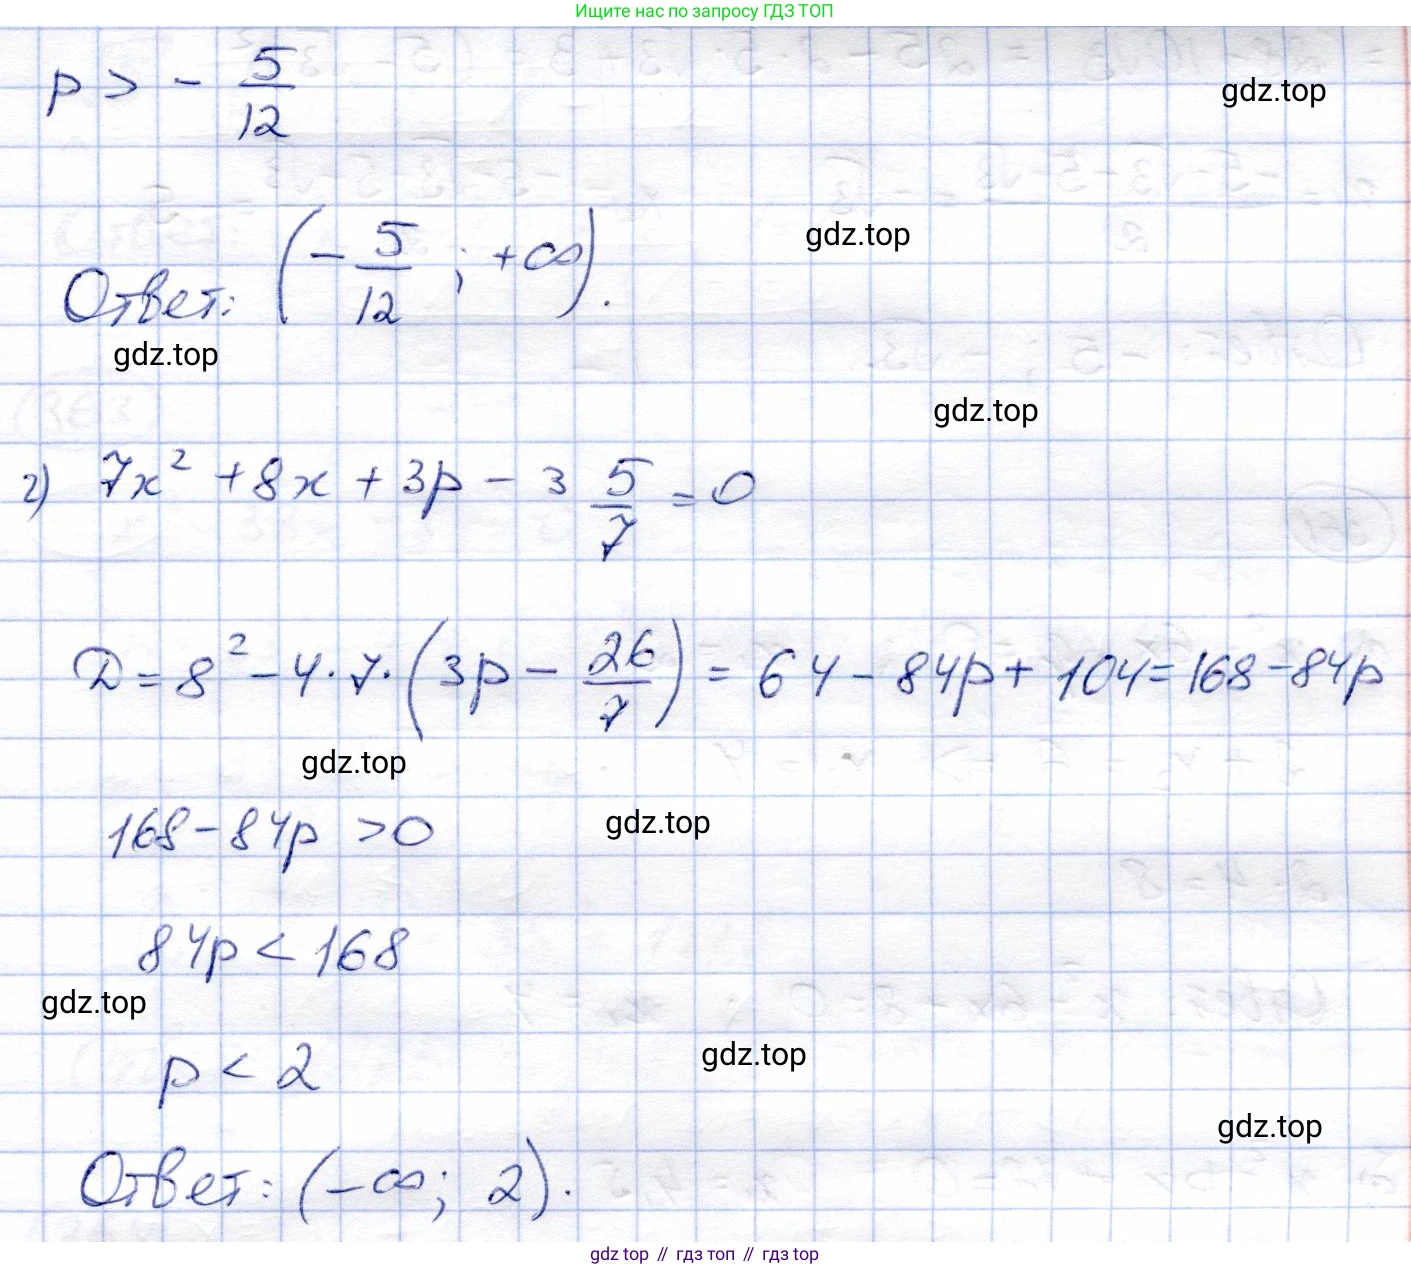 Ищите нас по запросу ГДЗ ТОП
p > - 5/12
gdz.top
Ответ: (- 5/12 ; +∞).
gdz.top
gdz.top
gdz.top
г) 7x² + 8x + 3p - 3 5/7 = 0
D = 8² - 4 · 7 · (3p - 26/7) = 64 - 84p + 104 = 168 - 84p
gdz.top
168 - 84p > 0
gdz.top
84p < 168
gdz.top
p < 2
gdz.top
gdz.top
Ответ: (-∞; 2).
gdz top // гдз топ // гдз top